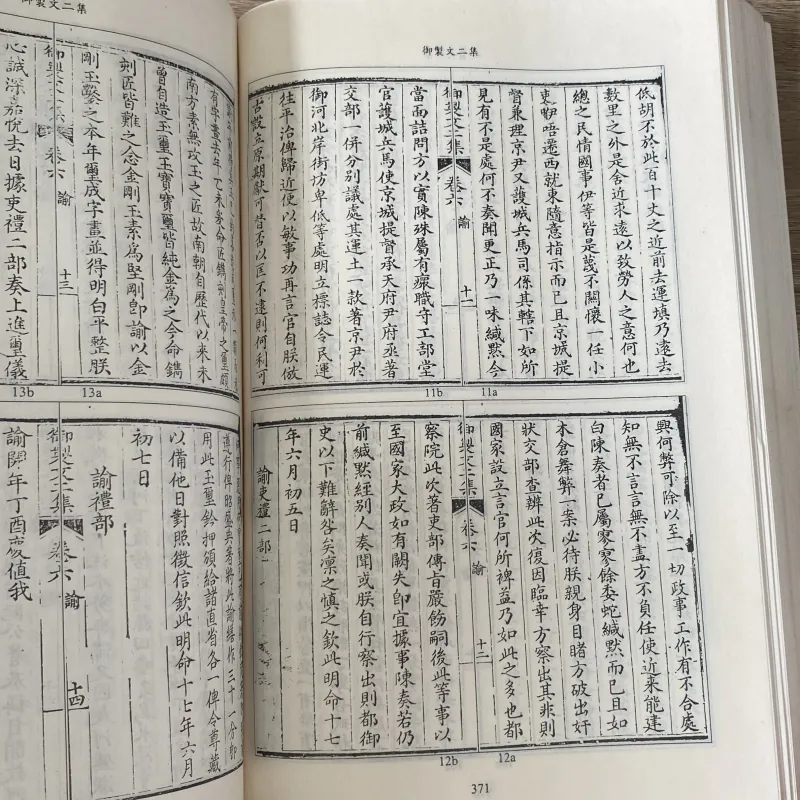 御製文二集
低胡不於此百十丈之近前去運填乃遠去
數里之外是舍近求遠以致勞人之意何也
總之民情國事伊等皆是蔑不關懷一任小
吏咿唔遷西就東隨意指示而已且京城提
督兼理京尹又護城兵馬司係其轄下如所
見有不是處何不奏聞更正乃一味緘默今
御製文二集 卷六 諭 十一
當面詰問方以實陳殊屬有瘝職守工部堂
官護城兵馬使京城提督承天府尹府丞著
交部一併分別議處其運土一款著京尹於
御河北岸街坊卑低等處明立標誌令民運
往平治俾歸近便以敏事功再言官自朕倣
古設立原期獻可替否以匡不逮則何利可
11b 11a
興何弊可除以至一切政事工作有不合處
知無不言言無不盡方不負任使近來能建
白陳奏者已屬寥寥餘委蛇緘默而已且如
本倉舞弊一案必待朕親身目睹方破出奸
狀交部查辨此次復因臨幸方察出其非則
國家設立言官何所裨益乃如此之多也都
御製文二集 卷六 諭 十二
察院此次著吏部傳旨嚴飭嗣後此等事以
至國家大政如有闕失卽宜據事陳奏若仍
前緘默經別人奏聞或朕自行察出則都御
史以下難辭咎矣凜之慎之欽此明命十七
年六月初五日
諭吏禮二部
12b 12a
371
御製文二集
年乙未爰命匠鐫刻皇帝之璽顧
南方素無攻玉之匠故南朝自歷代以來未
曾自造玉璽玉寶寶璽皆純金爲之今命鐫
刻匠皆難之念金剛玉素爲堅剛卽諭以金
剛玉鑿之本年璽成字畫並得明白平整朕
御製文二集 卷六 諭 十三
心誠深嘉悅去日據吏禮二部奏上進璽儀
13b 13a
遵行俾昭盛典著將此諭繕作三十一分卽
用此玉璽鈐押頒給諸直省各一俾令尊藏
以備他日對照徵信欽此明命十七年六月
初七日
諭禮部
御製文二集 卷六 諭 十四
諭開年丁酉爰值我